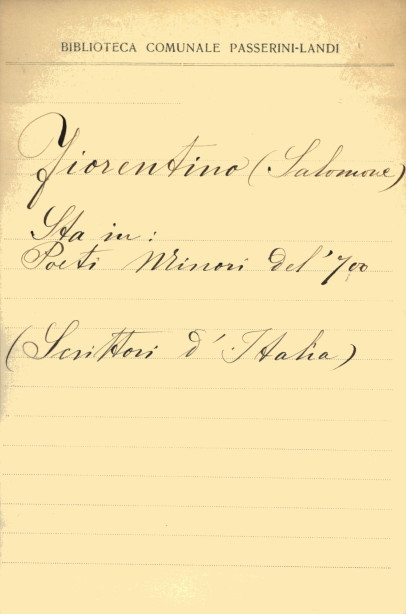 BIBLIOTECA COMUNALE PASSERINI-LANDI
Fiorentino (Salomone)
Sta in:
Poeti Minori del '700
(Scrittori d'Italia)